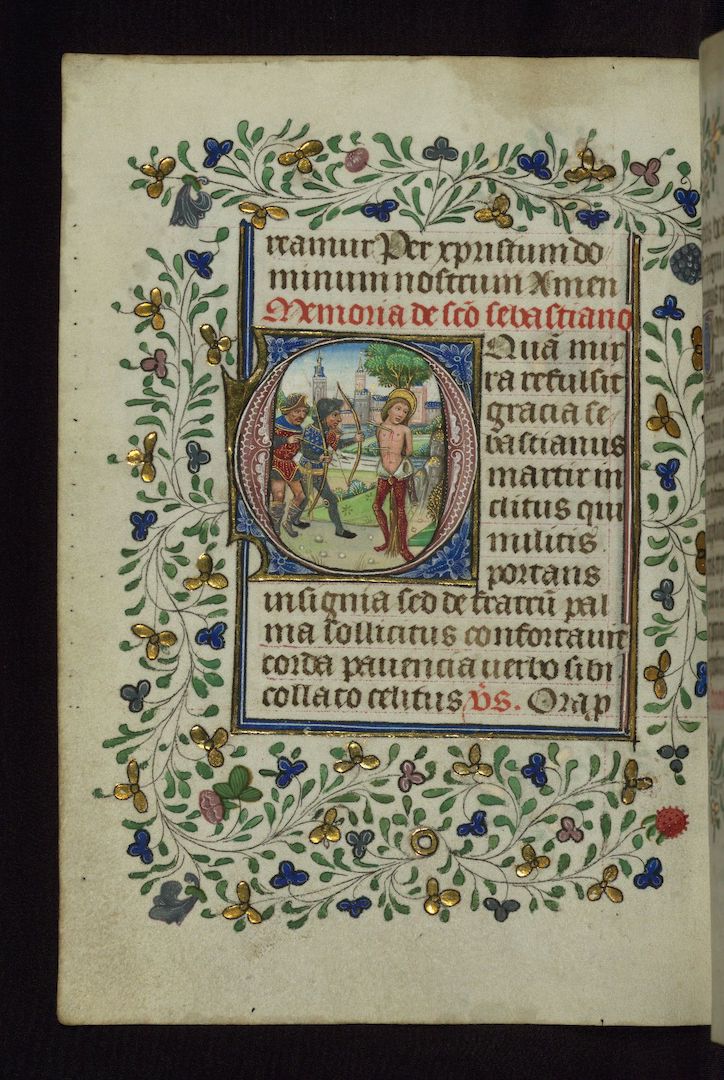 reamur Per xpristum do
minum nostrum Amen
Memoria de scō sebastiano
Quā mir
ra refulsit
gracia se
bastianus
martir in
clitus qui
militis
portans
insignia sed de fratrū pal
ma sollicitus confortavit
corda pavencia uerbo sibi
collato celitus v̄s. Ora p